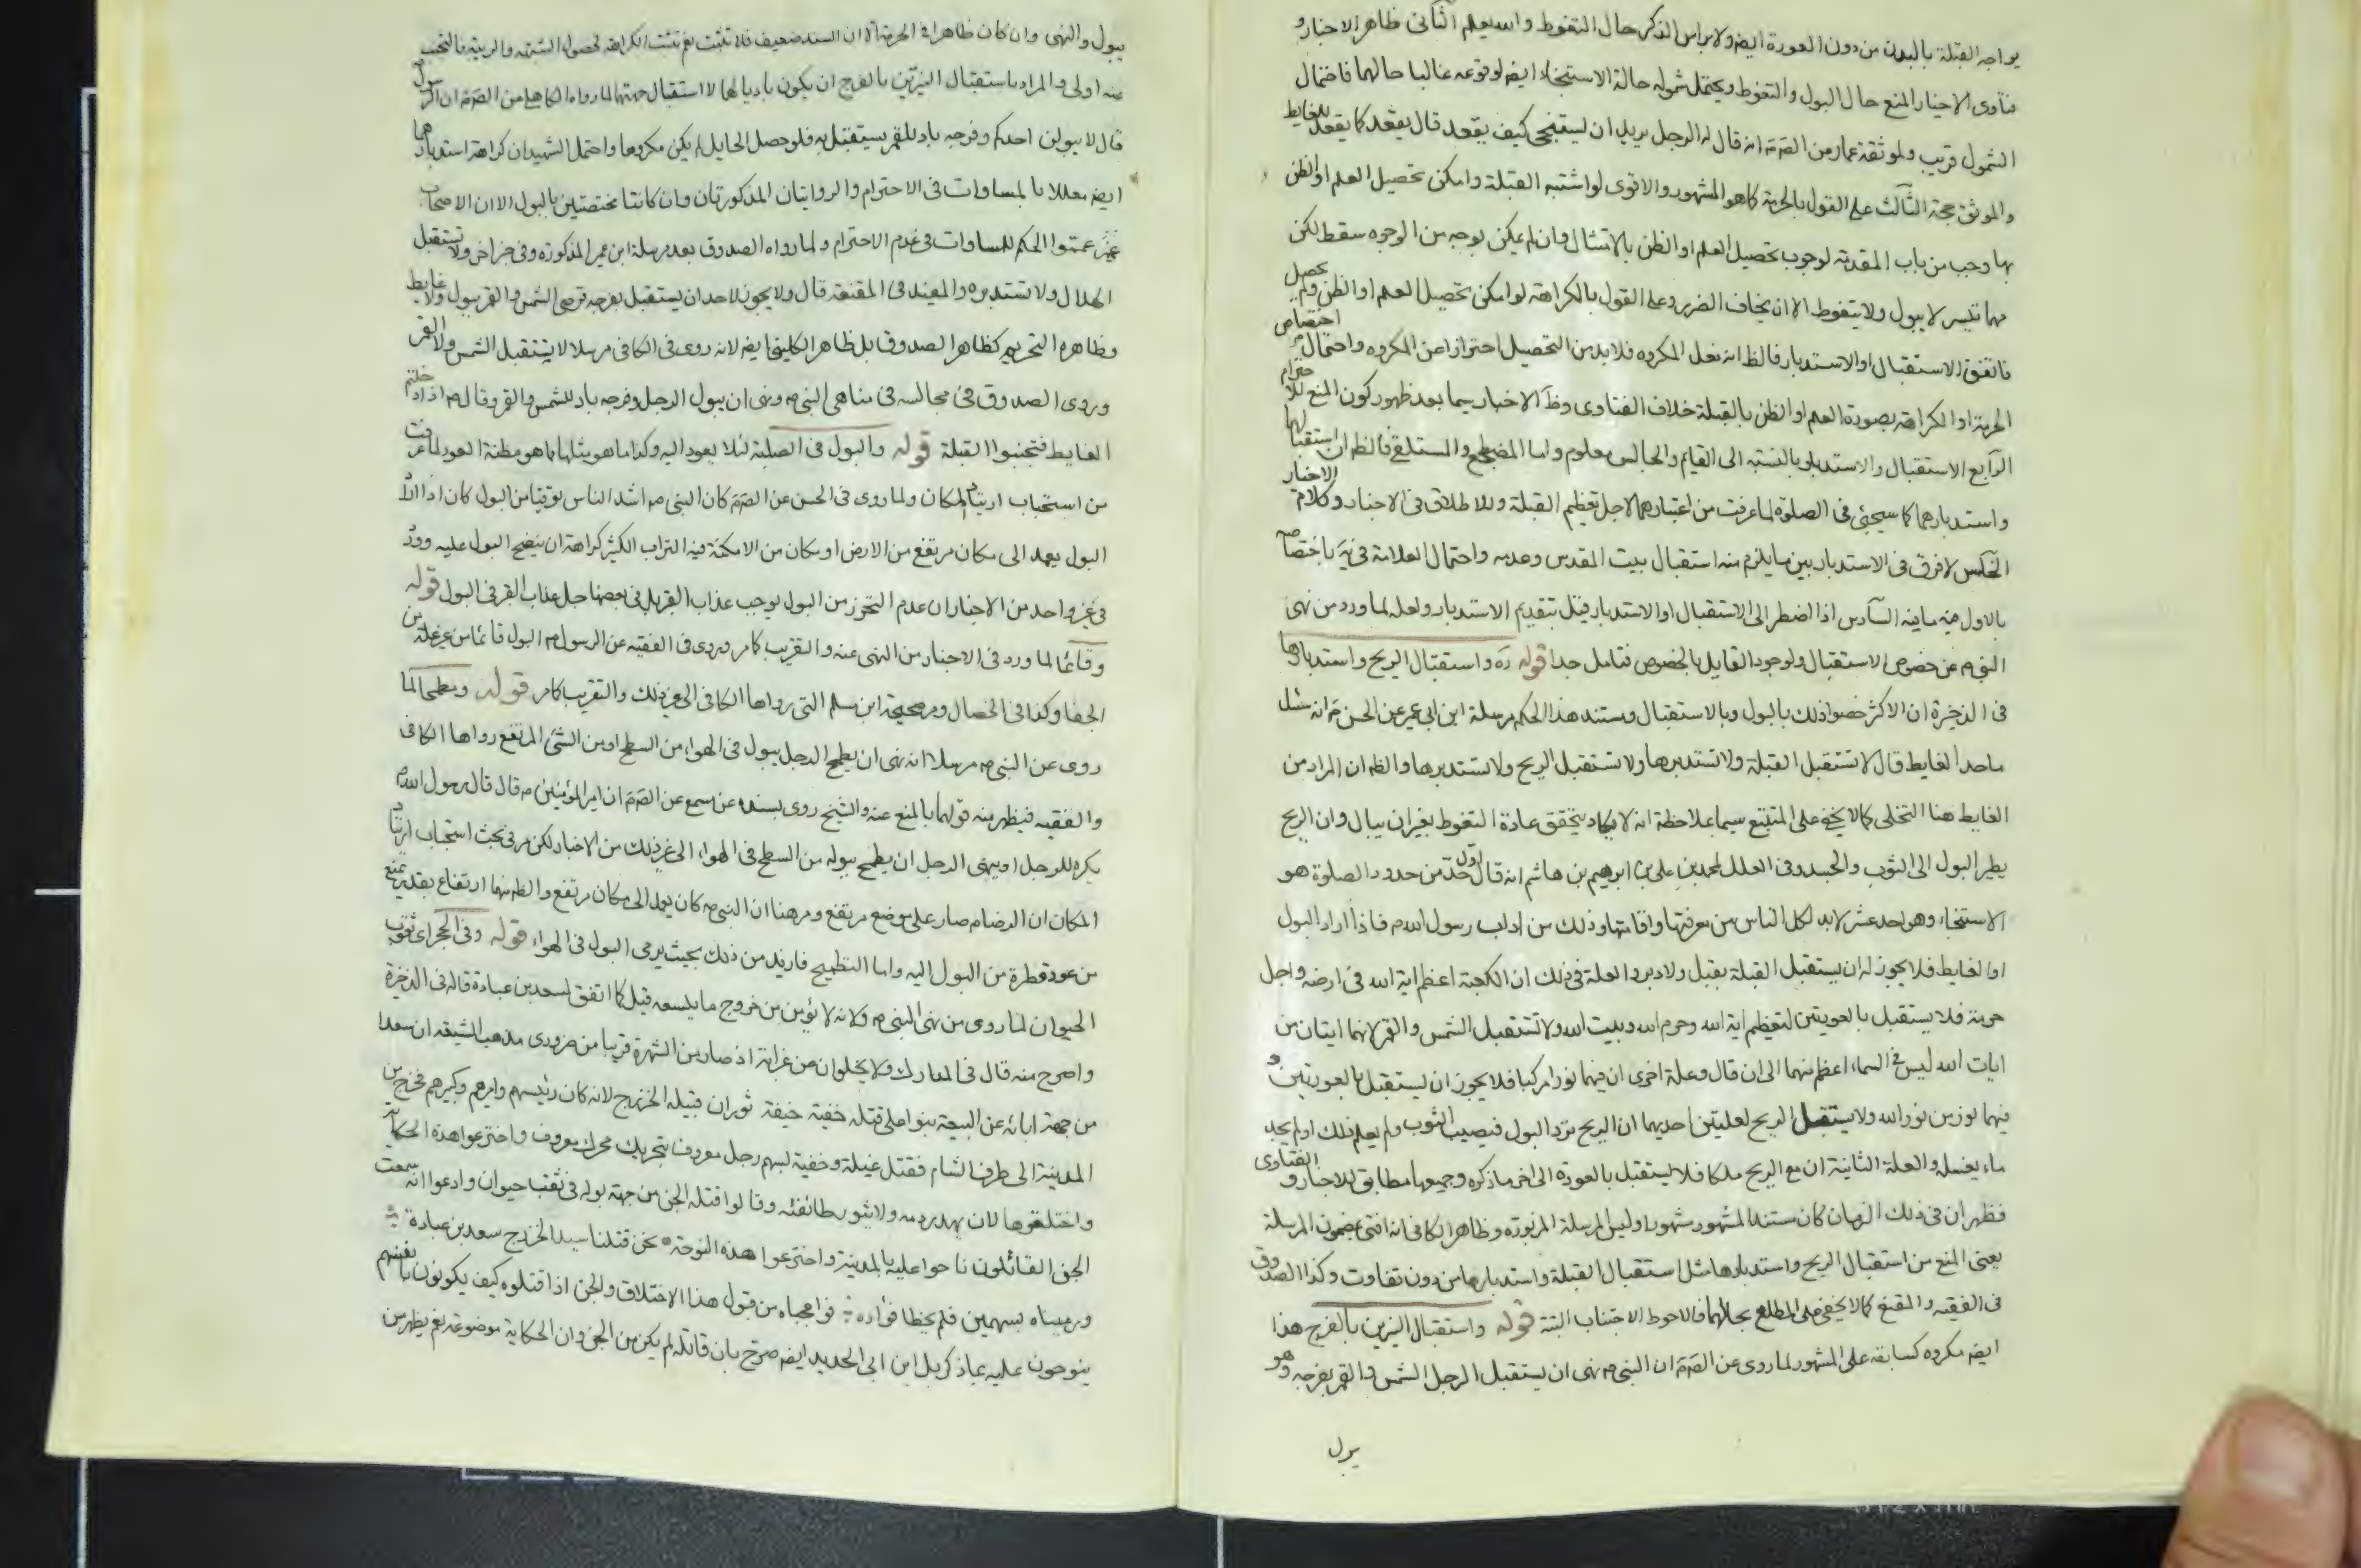 يواجه القبلة بالبدن من دون العورة ايضا ولا براس الذكر حال التغوط والله يعلم الثاني ظاهر الاخبار و
فتاوى الاخيار المنع حال البول والتغوط ويحتمل شموله حالة الاستنجاء ايضا لوقوعه غالبا حالهما فاحتمال
الشمول قريب ولموثقة عمار من الصادق ع انه قال له الرجل يريد ان يستنجي كيف يقعد قال يقعد كما يقعد للغايط
والموثق حجة الثالث على القول بالحرمة كما هو المشهور والاقوى لو اشتبه القبلة وامكن تحصيل العلم او الظن
بها وجب من باب المقدمة لوجوب تحصيل العلم او الظن بالامتثال وان لم يمكن بوجه من الوجوه سقط لكن
مهما تيسر لا يبول ولا يتغوط الا ان يخاف الضرر وعلى القول بالكراهة لو امكن تحصيل العلم او الظن ولم يحصل
فاتفق الاستقبال او الاستدبار فالظ انه فعل المكروه فلا بد من التحصيل احترازا عن المكروه واحتمال اختصاص
الحرمة او الكراهة بصورة العلم او الظن بالقبلة خلاف الفتاوى وظ الاخبار سيما بعد ظهور كون المنع للاحترام
الرابع الاستقبال والاستدبار بالنسبة الى القايم والجالس معلوم واما المضطجع والمستلقي فالظ ان استقبالها
واستدبارهما كما سيجئ في الصلوة لما عرفت من اعتبارهما لاجل تعظيم القبلة وللاطلاق في الاخبار وكلام الاخيار
الخامس لا فرق في الاستدبار بين ما يلزم منه استقبال بيت المقدس وعدمه واحتمال العلامة في يه باختصاصه
بالاول فيه ما فيه السادس اذا اضطر الى الاستقبال او الاستدبار قيل بتقديم الاستدبار ولعله لما ورد من نهى
النبي ص عن خصوص الاستقبال ولوجود القايل بالخصوص فتامل جدا قوله ره واستقبال الريح واستدبارها
في الذخيرة ان الاكثر خصوا ذلك بالبول وبالاستقبال ومستند هذا الحكم مرسلة ابن ابي عمير عن الحسن ع انه سئل
ما حد الغايط قال لا تستقبل القبلة ولا تستدبرها ولا تستقبل الريح ولا تستدبرها والظ ان المراد من
الغايط هنا التخلي كما لا يخفى على المتتبع سيما بملاحظة انه لا يكاد يتحقق عادة التغوط بغير ان يبال وان الريح
يطير البول الى الثوب والجسد وفي العلل لمحمد بن علي بن ابرهيم بن هاشم انه قال اول حد من حدود الصلوة هو
الاستنجاء وهو احد عشر لا بد لكل الناس من معرفتها واقامتها وذلك من اداب رسول الله ص فاذا اراد البول
او الغايط فلا يجوز له ان يستقبل القبلة بقبل ولا دبر والعلة في ذلك ان الكعبة اعظم اية الله في ارضه واجل
حرمة فلا يستقبل بالعورتين لتعظيم اية الله وحرم الله وبيت الله ولا تستقبل الشمس والقمر لانهما ايتان من
ايات الله ليس في السماء اعظم منهما الى ان قال وعلة اخرى ان فيهما نورا مركبا فلا يجوز ان يستقبل بالعورتين و
فيهما نور من نور الله ولا يستقبل الريح لعلتين احديهما ان الريح يرد البول فيصيب الثوب ولم يعلم ذلك او لم يجد
ماء يغسله والعلة الثانية ان مع الريح ملكا فلا يستقبل بالعورة الى اخر ما ذكره وجميعها مطابق للاخبار و الفتاوى
فظهر ان في ذلك الزمان كان مستند المشهور مشهورا وليس المرسلة المزبورة وظاهر الكافي انه افتى بمضمون المرسلة
يعني المنع من استقبال الريح واستدبارها مثل استقبال القبلة واستدبارها من دون تفاوت وكذا الصدوق
في الفقيه والمقنع كما لا يخفى على المطلع بحالهما فالاحوط الاجتناب البتة قوله واستقبال النيرين بالفرج هذا
ايضا مكروه كسابقه على المشهور لما روى عن الصادق ع ان النبي ص نهى ان يستقبل الرجل الشمس والقمر بفرجه وهو
يبول
يبول والنهى وان كان ظاهرا في الحرمة الا ان السند ضعيف فلا تثبت نعم تثبت الكراهة لحصول الشبهة والريبة فالتجنب
عنه اولى والمراد باستقبال النيرين بالفرج ان يكون باديا لهما لا استقبال جهتهما لما رواه الكاهلي من الصادق ع ان الرسول
قال لا يبولن احدكم وفرجه باد للقمر يستقبل به فلو حصل الحايل لم يكن مكروها واحتمل الشهيدان كراهة استدبارهما
ايضا معللا بالمساوات في الاحترام والروايتان المذكورتان وان كانتا مختصتين بالبول الا ان الاصحاب
عمموا الحكم للمساوات في عدم الاحترام ولما رواه الصدوق بعد مرسلة ابن عمير المذكورة وفي خبر اخر ولا تستقبل
الهلال ولا تستدبره والمفيد في المقنعة قال ولا يجوز لاحد ان يستقبل بفرجه قرصي الشمس والقمر ببول ولا غايط
وظاهره التحريم كظاهر الصدوق بل ظاهر الكليني ايضا لانه روى في الكافي مرسلا لا يستقبل الشمس ولا القمر
وروى الصدوق في مجالسه في مناهي النبي ص ونهى ان يبول الرجل وفرجه باد للشمس والقمر وقال ص اذا دخلتم
الغايط فتجنبوا القبلة قوله والبول في الصلبة لئلا يعود اليه وكذا ما هو مثلها مما هو مظنة العود لما عرفت
من استحباب ارتياد المكان ولما روى في الحسن عن الصادق ع كان النبي ص اشد الناس توقيا من البول كان اذا اراد
البول يعمد الى مكان مرتفع من الارض او مكان من الامكنة فيه التراب الكثير كراهة ان ينضح البول عليه وورد
في غير واحد من الاخبار ان عدم التحرز من البول يوجب عذاب القبر بل في بعضها جل عذاب القبر في البول قوله
وقائما لما ورد في الاخبار من النهى عنه والتقريب كما مر وروى في الفقيه عن الرسول ص البول قائما من غير علة من
الجفا وكذا في الخصال ومر صحيحة ابن مسلم التي رواها الكافي الى غير ذلك والتقريب كما مر قوله ومطمحا لما
روى عن النبي ص مرسلا انه نهى ان يطمح الرجل ببول في الهواء من السطح او من الشئ المرتفع رواها الكافي
والفقيه فيظهر منه قولهما بالمنع عنه والشيخ روى بسنده عن مسمع عن الصادق ع ان امير المؤمنين ع قال قال رسول الله ص
يكره للرجل او ينهى الرجل ان يطمح ببوله من السطح في الهواء الى غير ذلك من الاخبار لكن مر في بحث استحباب ارتياد
المكان ان الرضا ع صار على موضع مرتفع ومر هنا ان النبي ص كان يعمد الى مكان مرتفع والظ منهما ارتفاع بقدر يمنع
من عود قطرة من البول اليه واما التطميح فازيد من ذلك بحيث يرمى البول في الهواء قوله وفي الحجر اى ثقوب
الحيوان لما روى من نهى النبي ص ولانه لا يؤمن من خروج ما يلسعه قيل كما اتفق لسعد بن عبادة قاله في الذخيرة
واصرح منه قال في المدارك ولا يخلوان من غرابة اذ صار من الشهرة قريبا من ضرورى مذهب الشيعة ان سعدا
من جهة ابائه عن البيعة بنوا على قتله خفية خيفة ثوران قبيلة الخزرج لانه كان رئيسهم واميرهم وكبيرهم فخرج من
المدينة الى طرف الشام فقتل غيلة وخفية بسهم رجل معروف بتحريك محرك معروف واخترعوا هذه الحكاية
واختلقوها لان يهدر دمه ولا يثور طائفته وقالوا قتله الجن من جهة بوله في ثقب حيوان وادعوا انه سمعت
الجن القائلون ناحوا عليه بالمدينة واخترعوا هذه النوحة نحن قتلنا سيد الخزرج سعد بن عبادة
ورميناه بسهمين فلم يخطا فؤاده فواعجباه من قبول هذا الاختلاق والجن اذا قتلوه كيف يكونون بانفسهم
ينوحون عليه بما ذكر بل ابن ابي الحديد ايضا صرح بان قاتله لم يكن من الجن وان الحكاية موضوعة نعم يظهر من